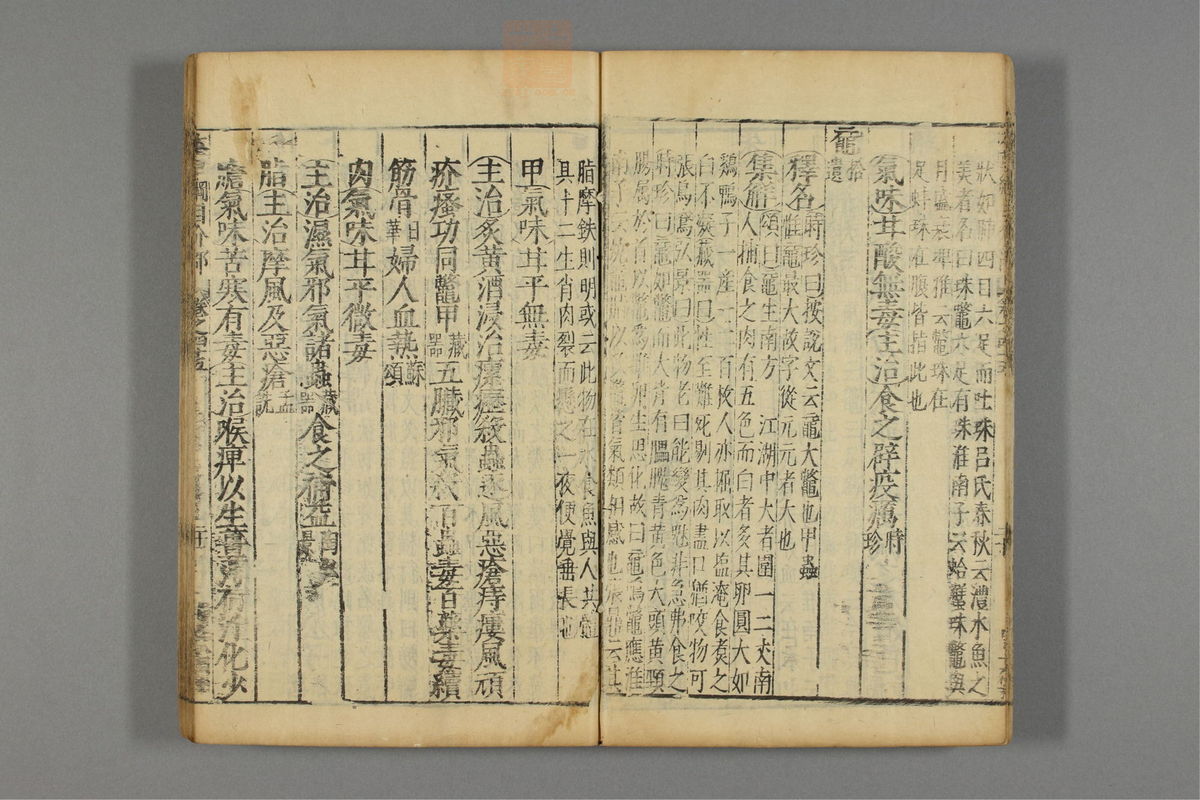 狀如肺四目六足而吐珠呂氏春秋云澧水魚之
美者名曰珠鼈六足有珠淮南子云蛤蟹珠鼈與
月盛衰埤雅云鼈珠在
足蚌珠在腹皆指此也
氣味甘酸無毒主治食之辟疫癘時珍
黿拾遺
釋名時珍曰按說文云黿大鼈也甲蟲
惟黿最大故字從元元者大也
集解頌曰黿生南方江湖中大者圍一二丈南
人捕食之肉有五色而白者多其卵圓大如
鷄鴨子一產一二百枚人亦掘取以鹽淹食煮之
白不凝藏器曰性至難死剔其肉盡口猶咬物可
張鳥鳶弘景曰此物老曰能變爲魅非急弗食之
時珍曰黿如鼈而大背有腽腫青黃色大頭黃頸
腸屬於首以鼈爲雌卵生思化故曰黿鳴鼈應淮
脂摩鉄則明或云此物在水食魚與人共體
具十二生肖肉裂而懸之一夜便覺垂長也
甲氣味甘平無毒
主治炙黃酒浸治瘰癧殺蟲逐風惡瘡痔瘻風頑
疥瘙功同鼈甲藏器五臟邪氣殺百蟲毒百藥毒續
筋骨日華婦人血熱蘇頌
肉氣味甘平微毒
主治濕氣邪氣諸蟲藏器食之補益
脂主治摩風及惡瘡孟詵
膽氣味苦寒有毒主治喉痺以生薑薄荷汁化少